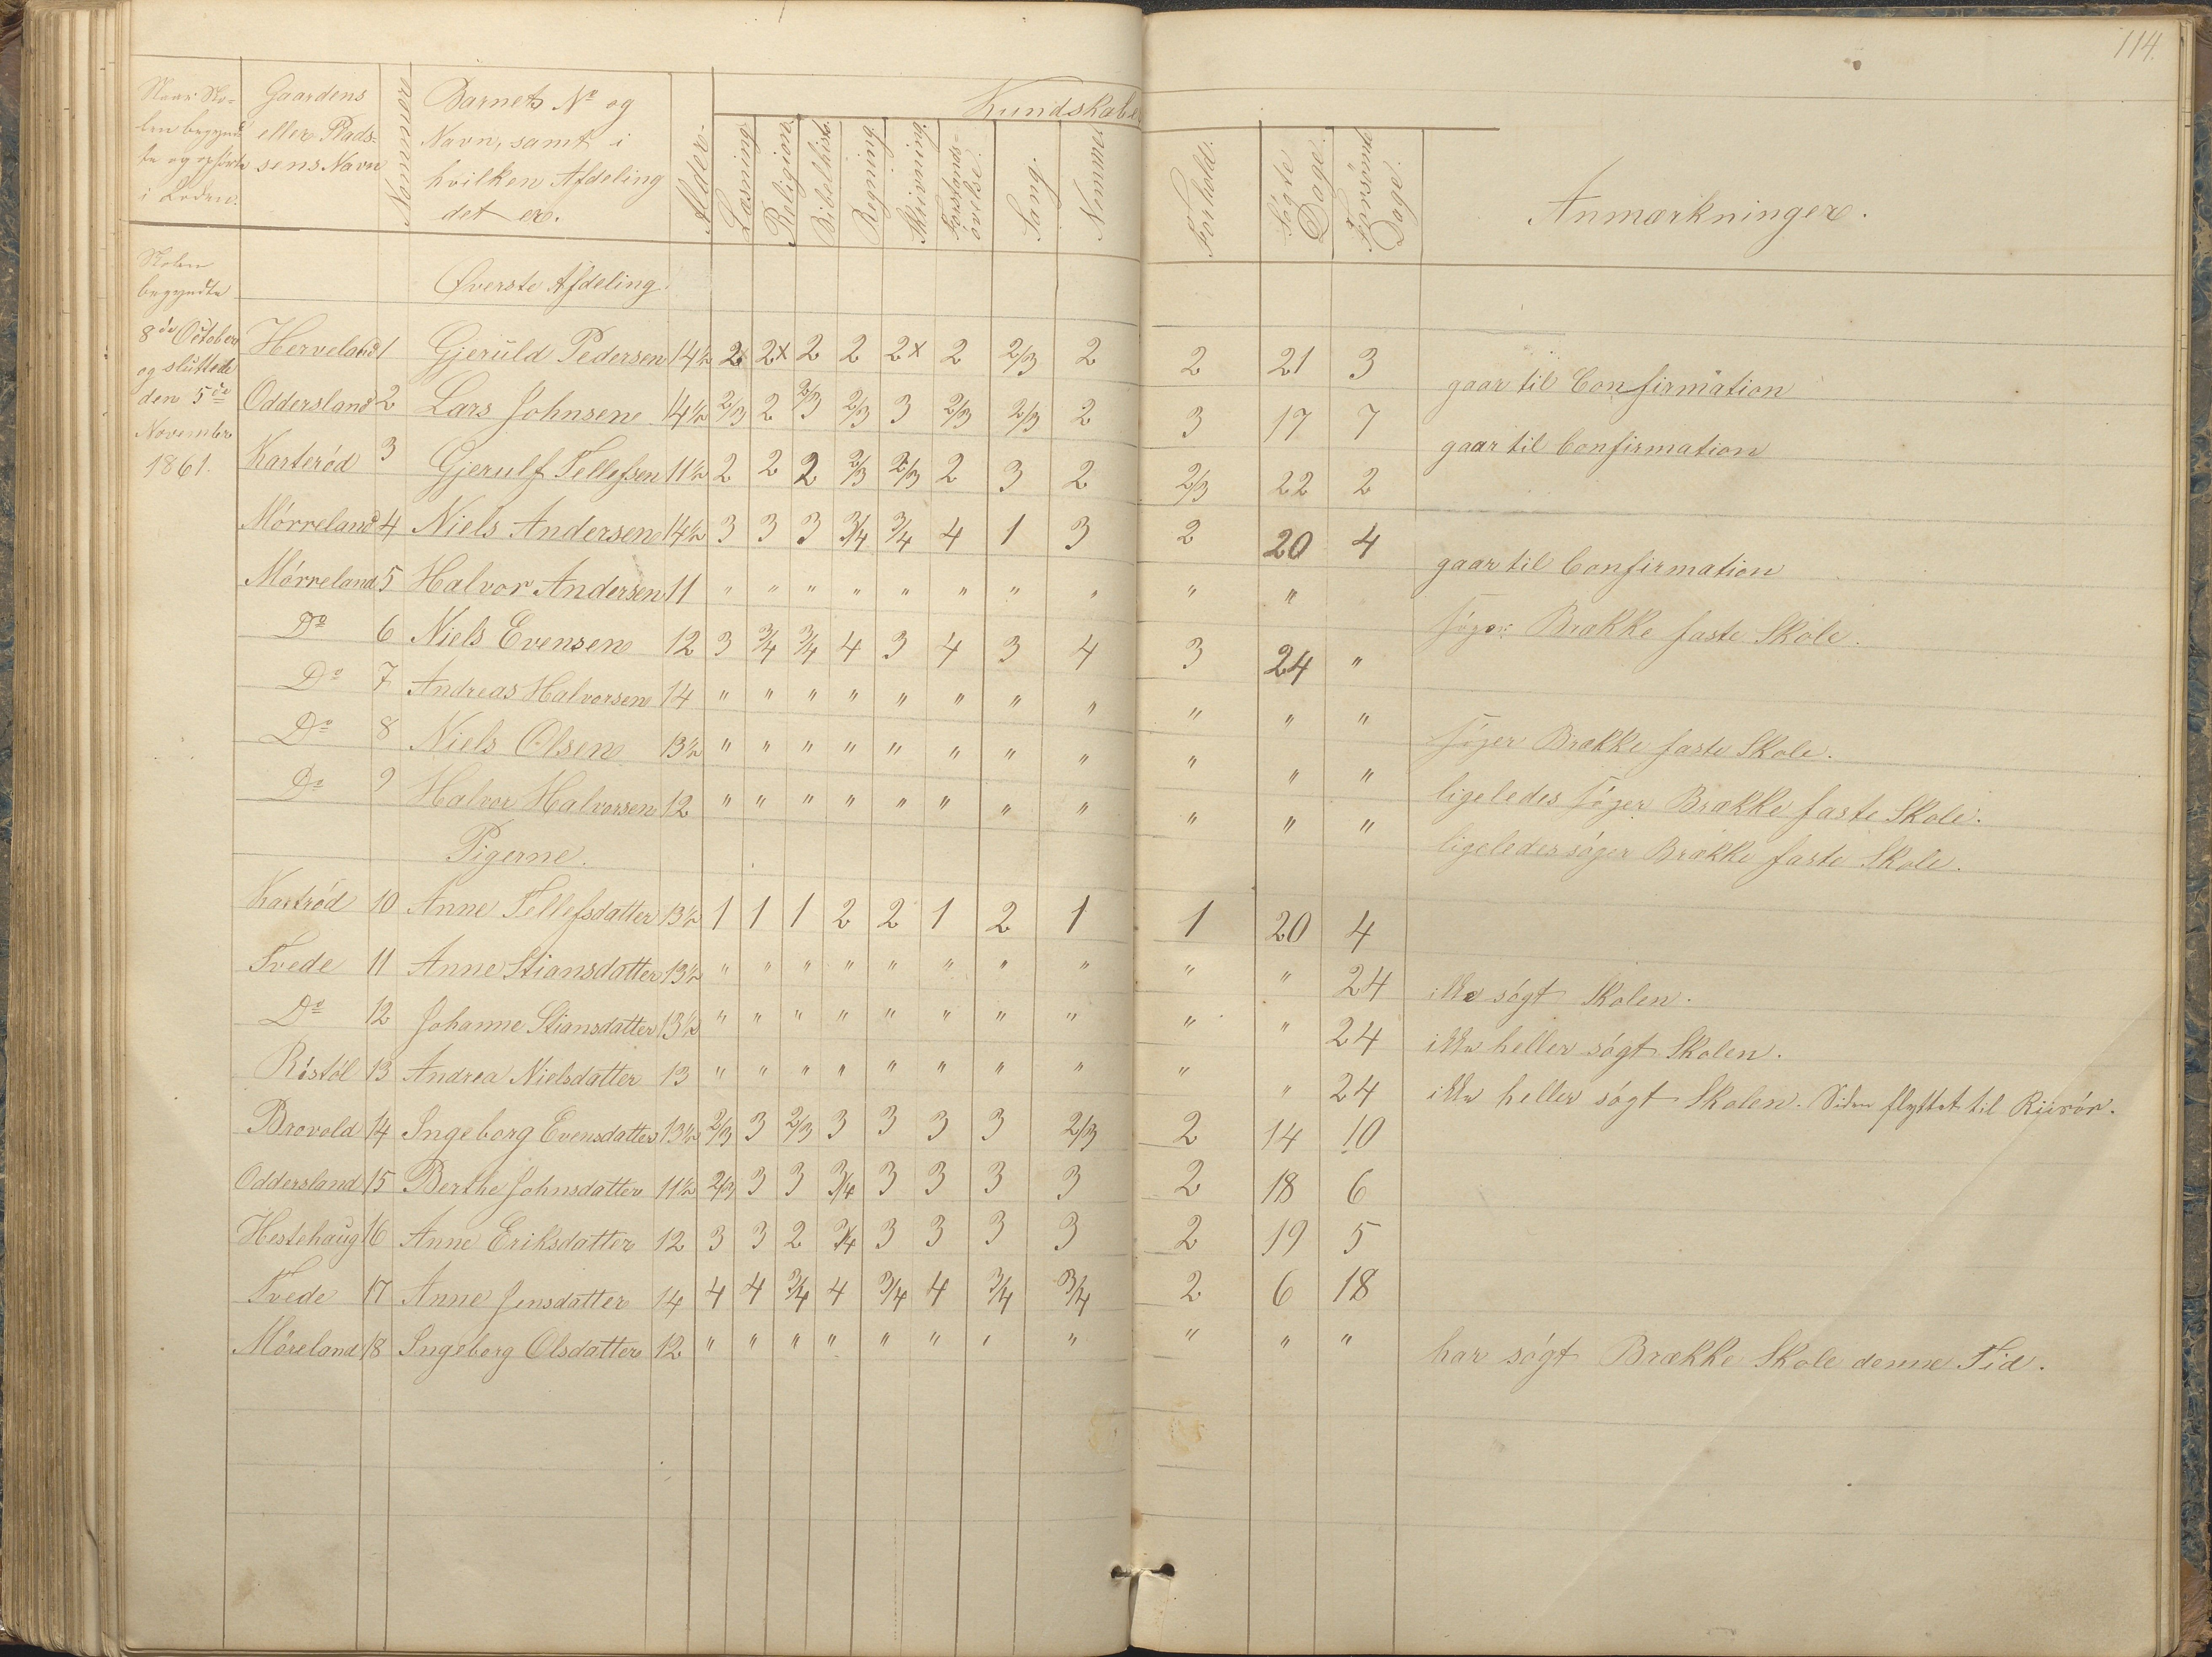 114.
Naar Sko-
len begynd-
te og ophørte
i Loden.
Gaardens
eller Plads-
sens Navn
Nommer
Barnets No og
Navn, samt i
hvilken Afdeling
det er.
Alder.
Kundskaber
Læsning
Religion.
Bibelhist.
Regning.
Skrivning.
Forstands-
øvelse.
Sang.
Nemme
Forhold.
Søgte
Dage.
Forsømte
Dage.
Anmærkninger.
Skolen
begyndte
8de October
og sluttede
den 5te
November
1861.
Øverste Afdeling
Herveland 1 Gjeruld Pedersen 14½ 2x 2x 2 2 2x 2 2/3 2 2 21 3 gaar til Confirmation
Oddersland 2 Lars Johnsen 14½ 2/3 2 2/3 2/3 3 2/3 2/3 2 3 17 7 gaar til Confirmation
Karterød 3 Gjerulf Tellefsen 11½ 2 2 2 2/3 2/3 2 3 2 2/3 22 2
Mørreland 4 Niels Andersen 14½ 3 3 3 3/4 3/4 4 1 3 2 20 4 gaar til Confirmation
Mørreland 5 Halvor Andersen 11 " " " " " " " " " " søger Brække faste Skole.
Do 6 Niels Evensen 12 3 3/4 3/4 4 3 4 3 4 3 24 "
Do 7 Andreas Halvorsen 14 " " " " " " " " " " " søger Brække faste Skole.
Do 8 Niels Olsen 13½ " " " " " " " " " " " ligeledes søger Brække faste Skole.
Do 9 Halvor Halvorsen 12 " " " " " " " " " " " ligeledes søger Brække faste Skole.
Pigerne.
Kartrød 10 Anne Tellefsdatter 13½ 1 1 1 2 2 1 2 1 1 20 4
Tvede 11 Anne Stiansdatter 13½ " " " " " " " " " " 24 ikke søgt Skolen.
Do 12 Johanne Stiansdatter 13½ " " " " " " " " " " 24 ikke heller søgt Skolen.
Ristøl 13 Andrea Nielsdatter 13 " " " " " " " " " " 24 ikke heller søgt Skolen. Siden flyttet til Riisør.
Brovold 14 Ingeborg Evensdatter 13½ 2/3 3 2/3 3 3 3 3 2/3 2 14 10
Oddersland 15 Berthe Johnsdatter 11½ 2/3 3 3 3/4 3 3 3 3 2 18 6
Hestehaug 16 Anne Eriksdatter 12 3 3 2 3/4 3 3 3 3 2 19 5
Tvede 17 Anne Jensdatter 14 4 4 3/4 4 3/4 4 3/4 3/4 2 6 18
Møreland 18 Ingeborg Olsdatter 12 " " " " " " " " " " " har søgt Brække Skole denne Tid.